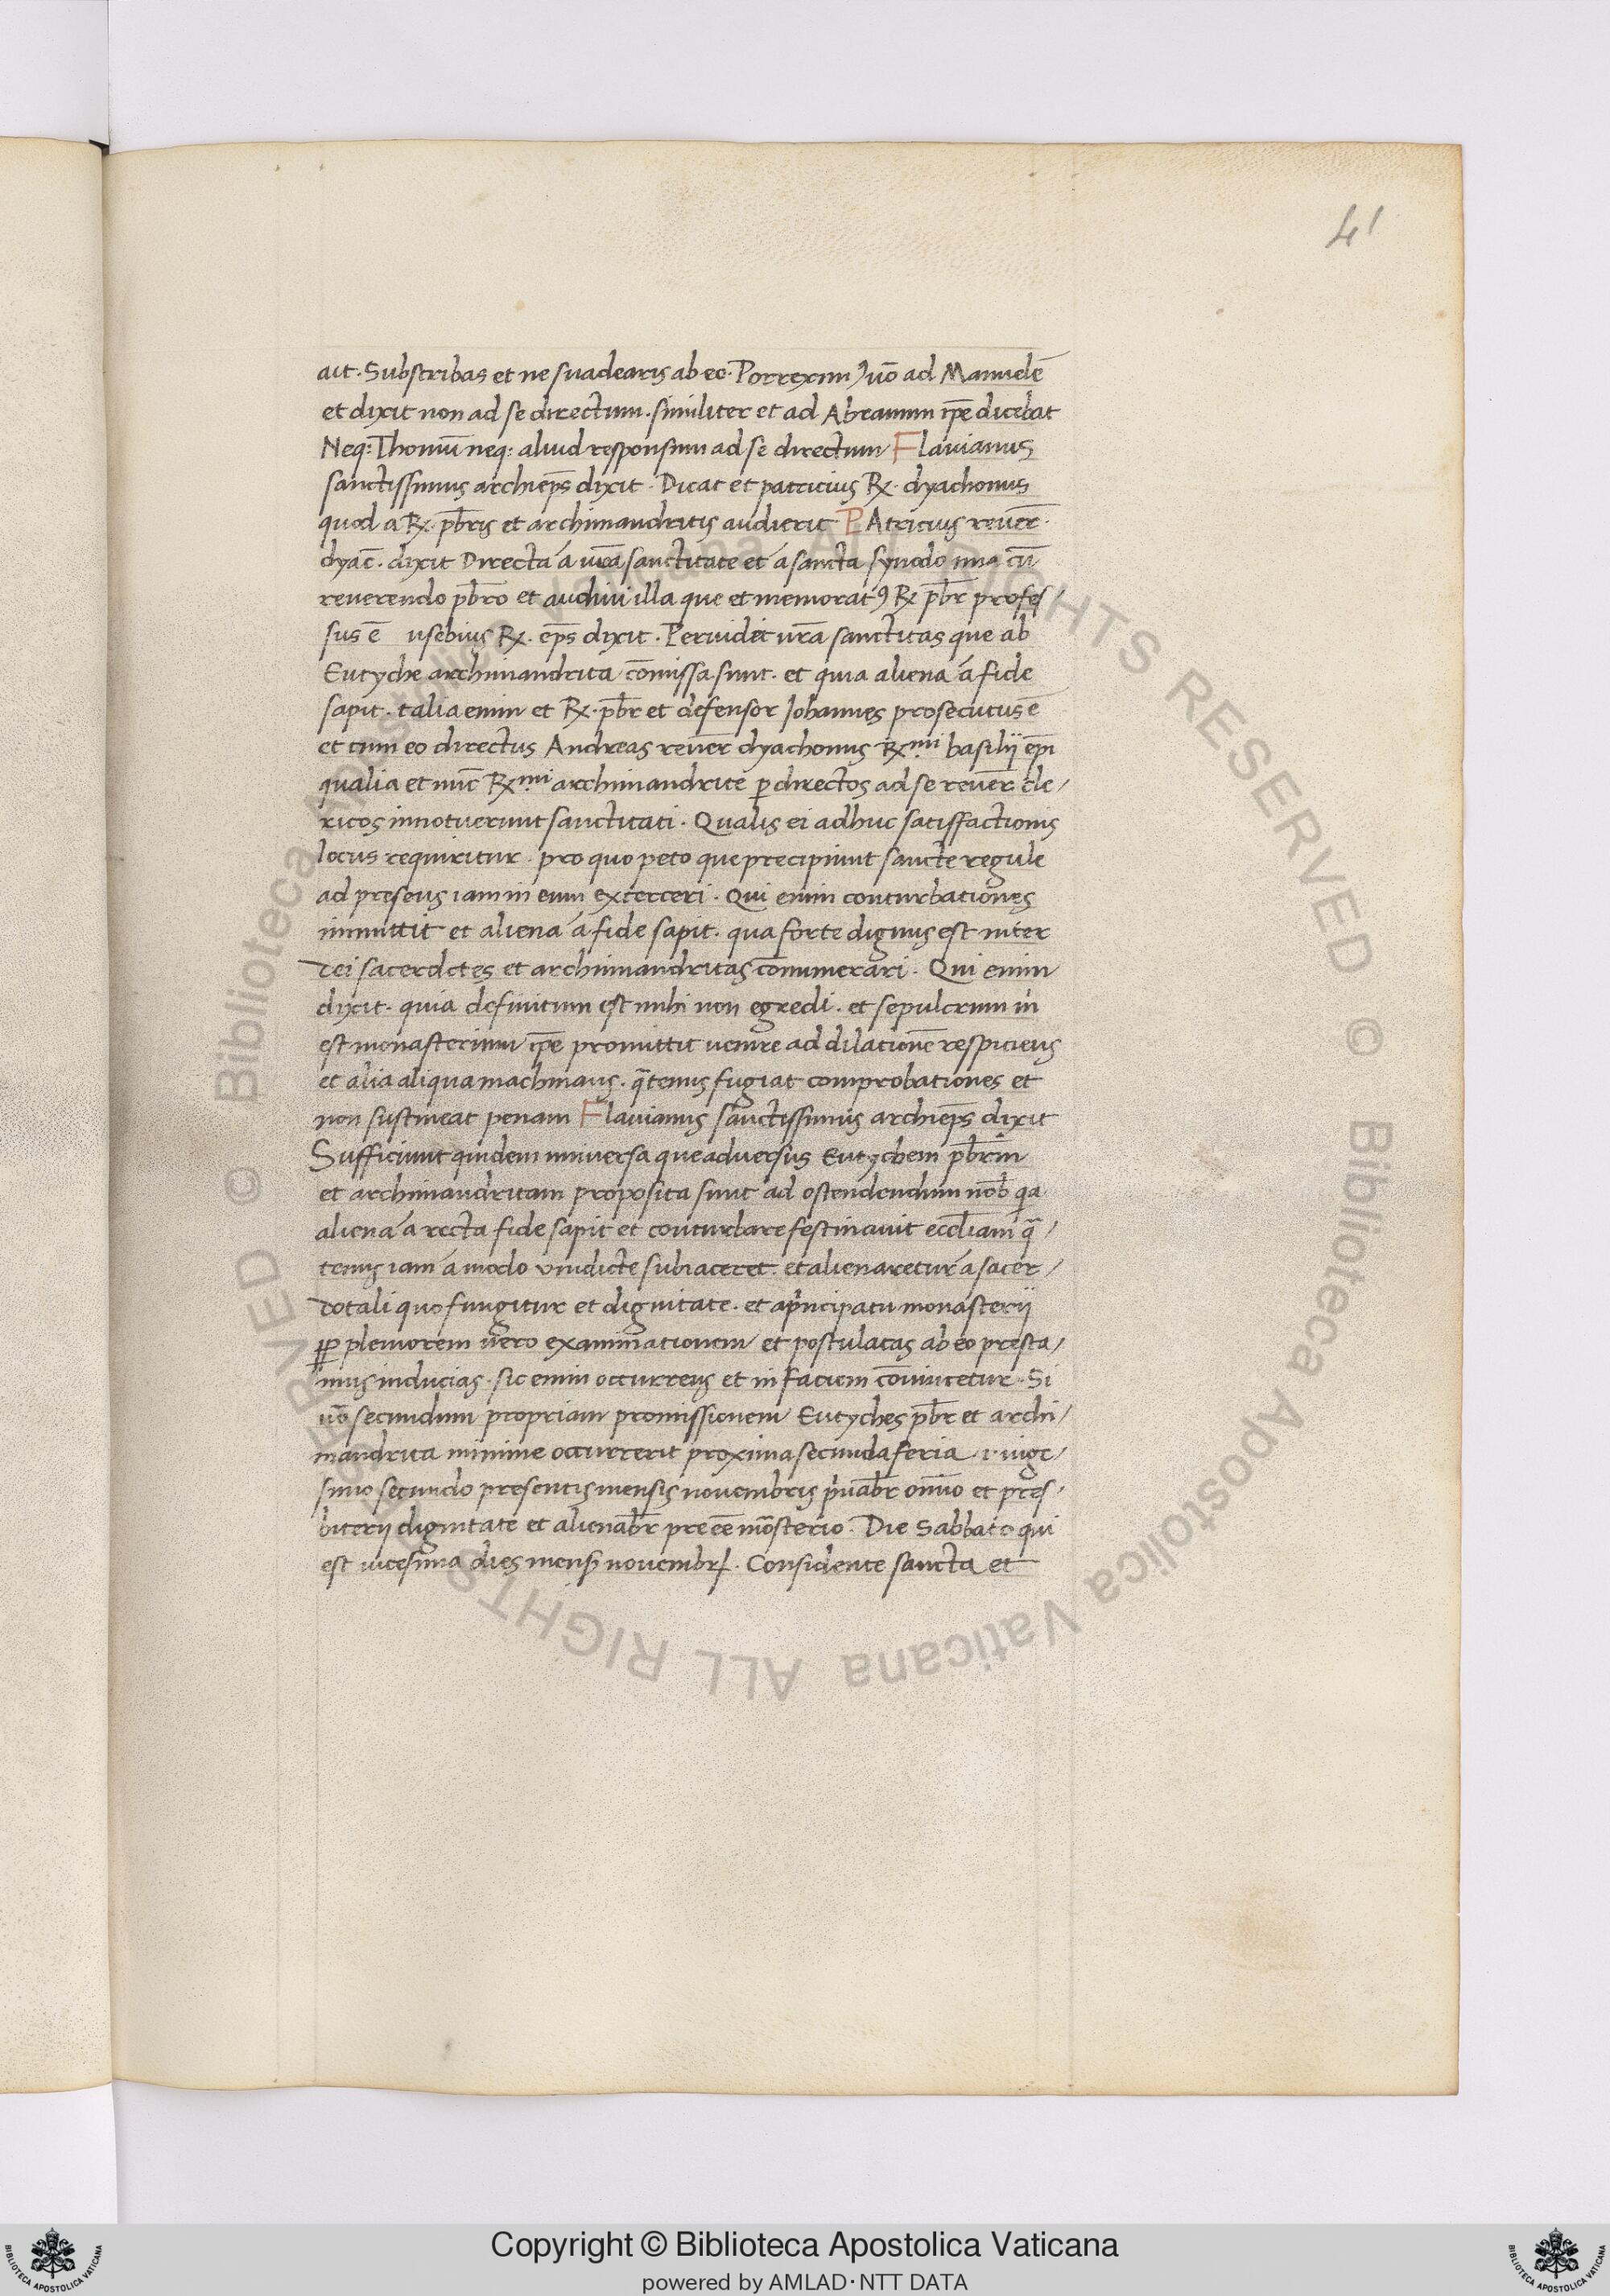 41
ait. Subscribas et ne suadearis ab eo. Porreximus uō ad Manuelē
et dixit non ad se directum. similiter et ad Abramum ip̄e dicebat
Neq: Thomū neq: aliud responsum ad se directum Flauianus
sanctissimus archiep̄s dixit. Dicat et patricius R. dyachonus
quod a R. pb̄ris et archimandritis audierit PAtricius reuer̄.
dyac̄. dixit Directa á ur̄a sanctitate et á sancta synodo una cū
reuerendo pb̄ro et audiui illa que et memorat9 R pb̄r profes/
sus ē usebius R. ep̄s dixit. Peruidet ur̄a sanctitas que ab
Eutyche archimandrita cōmissa sunt. et quia aliena á fide
sapit. talia enim et R. pb̄r et defensor Johannes prosecutus ē
et cum eo directus Andreas reuer̄ dyachonus R.mi basilij ep̄i
qualia et nūc R.mi archimandrite p directos ad se reuer̄ cle/
ricos innotuerunt sanctitati. Qualis ei adhuc satisfactionis
locus requiritur. pro quo peto que precipiunt sancte regule
ad presens iam in eum exterceri. Qui enim conturbationes
inmittit et aliena á fide sapit. qua forte dignus est inter
dei sacerdotes et archimandritas cōnumerari. Qui enim
dixit. quia definitum est mihi non egredi. et sepulcrum m̄
est monasterium ip̄e promittit uenire ad dilationē respiciens
et alia aliqua machinans. q̄tenus fugiat comprobationes et
non sustineat penam Flauianus sanctissimus archiep̄s dixit
Sufficiunt quidem uniuersa que aduersus Eutychem pb̄rm
et archimandritam proposita sunt ad ostendendum nob̄ qa
aliena á recta fide sapit et conturbare festinauit eccl̄iam q̄/
tenus iam á modo vindicte subiaceret. et alienaretur á sacer/
dotali quo fungitur et dignitate. et a principatu monasterij
pp pleniorem uero examinationem et postulatas ab eo presta/
mus inducias. sic enim occurrens et in faciem cōuincetur. Si
uō secundum propriam promissionem Eutyches pb̄r et archi/
mandrita minime occurrerit proxima secunda feria. uige/
simo secundo presentis mensis nouembris priuab̄r omīo et pres/
biterij dignitate et alienab̄r preeē mōsterio. Die Sabbato qui
est uicesima dies mens nouembr. Considente sancta et
Copyright © Biblioteca Apostolica Vaticana
powered by AMLAD·NTT DATA
© Biblioteca Apostolica Vaticana ALL RIGHTS RESERVED © Biblioteca Apostolica Vaticana ALL RIGHTS RESERVED
BIBLIOTECA APOSTOLICA VATICANA
BIBLIOTECA APOSTOLICA VATICANA